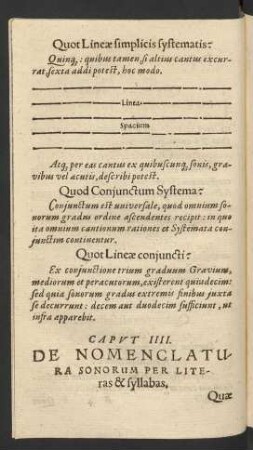 Quot Lineæ simplicis systematis?
Quinq;: quibus tamen, si altius cantus excur-
rat, sexta addi potest, hoc modo.
Linea.
Spacium
Atq; per eas cantus ex quibuscunq; sonis, gra-
vibus vel acutis, describi potest.
Quod Conjunctum Systema?
Conjunctum est universale, quod omnium so-
norum gradus ordine ascendentes recipit: in quo
ita omnium cantionum rationes et Systemata con-
junctim continentur.
Quot Lineæ conjuncti?
Ex conjunctione trium graduum Gravium,
mediorum et peracutorum, existerent quindecim:
sed quia sonorum gradus extremis finibus juxta
se decurrunt: decem aut duodecim sufficiunt, ut
infra apparebit.
CAPVT IIII.
DE NOMENCLATU-
RA SONORUM PER LITE-
ras & syllabas.
Quæ